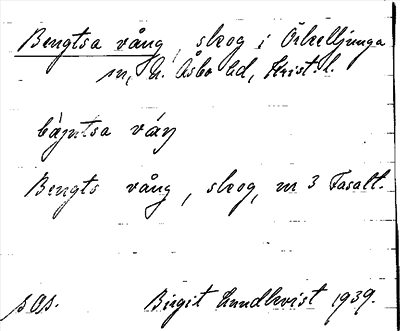 Bengtsa vång, skog i Örkelljunga
sn, N. Åsbo hd, Krist. l.
bæ̀ŋtsa váŋ
Bengts vång, skog, m 3 Fasalt.
sOs. Birgit Lundkvist 1939.